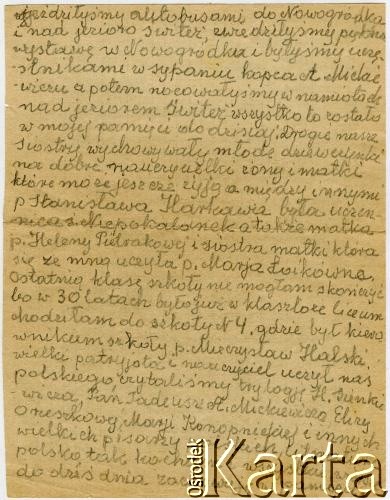 wjeździłyśmy autobusami do Nowogródka
i nad jezioro Świteź, zwiedziłyśmy piękną
wystawę w Nowogródku i byłyśmy ucze-
stnikami w sypaniu kopca A. Mickie-
wicza a potem nocowałyśmy w namiotach
nad jeziorem Świteź wszystko to zostało
w mojej pamięci do dzisiaj. Drogie nasze
siostry wychowywały młode dziewczynki
na dobre nauczycielki żony i matki
które może jeszcze żyją a między innymi
p Stanisława Harkawa była uczen-
nica z Niepokalanek a także matka
p. Heleny Pietrakowej i siostra matki która
się ze mną uczyła p. Marja Łwikówna.
Ostatnią klasę szkoły nie mogłam skończyć
bo w 30 latach było już w klasztorze liceum
chodziłam do szkoły N 4. gdzie był kiero
wnikiem szkoły p. Mieczysław Halski
wielki patryjota i nauczyciel uczył nas
polskiego czytaliśmy trylogję H. Sienki-
wicza, Pan Tadeusz A. Mickiewicza Elizy
Orzeszkowej Marji Konopnickiej i innych
wielkich pisarzy
polsko tak koch
do dziś dnia za
Ośrodek
Karta